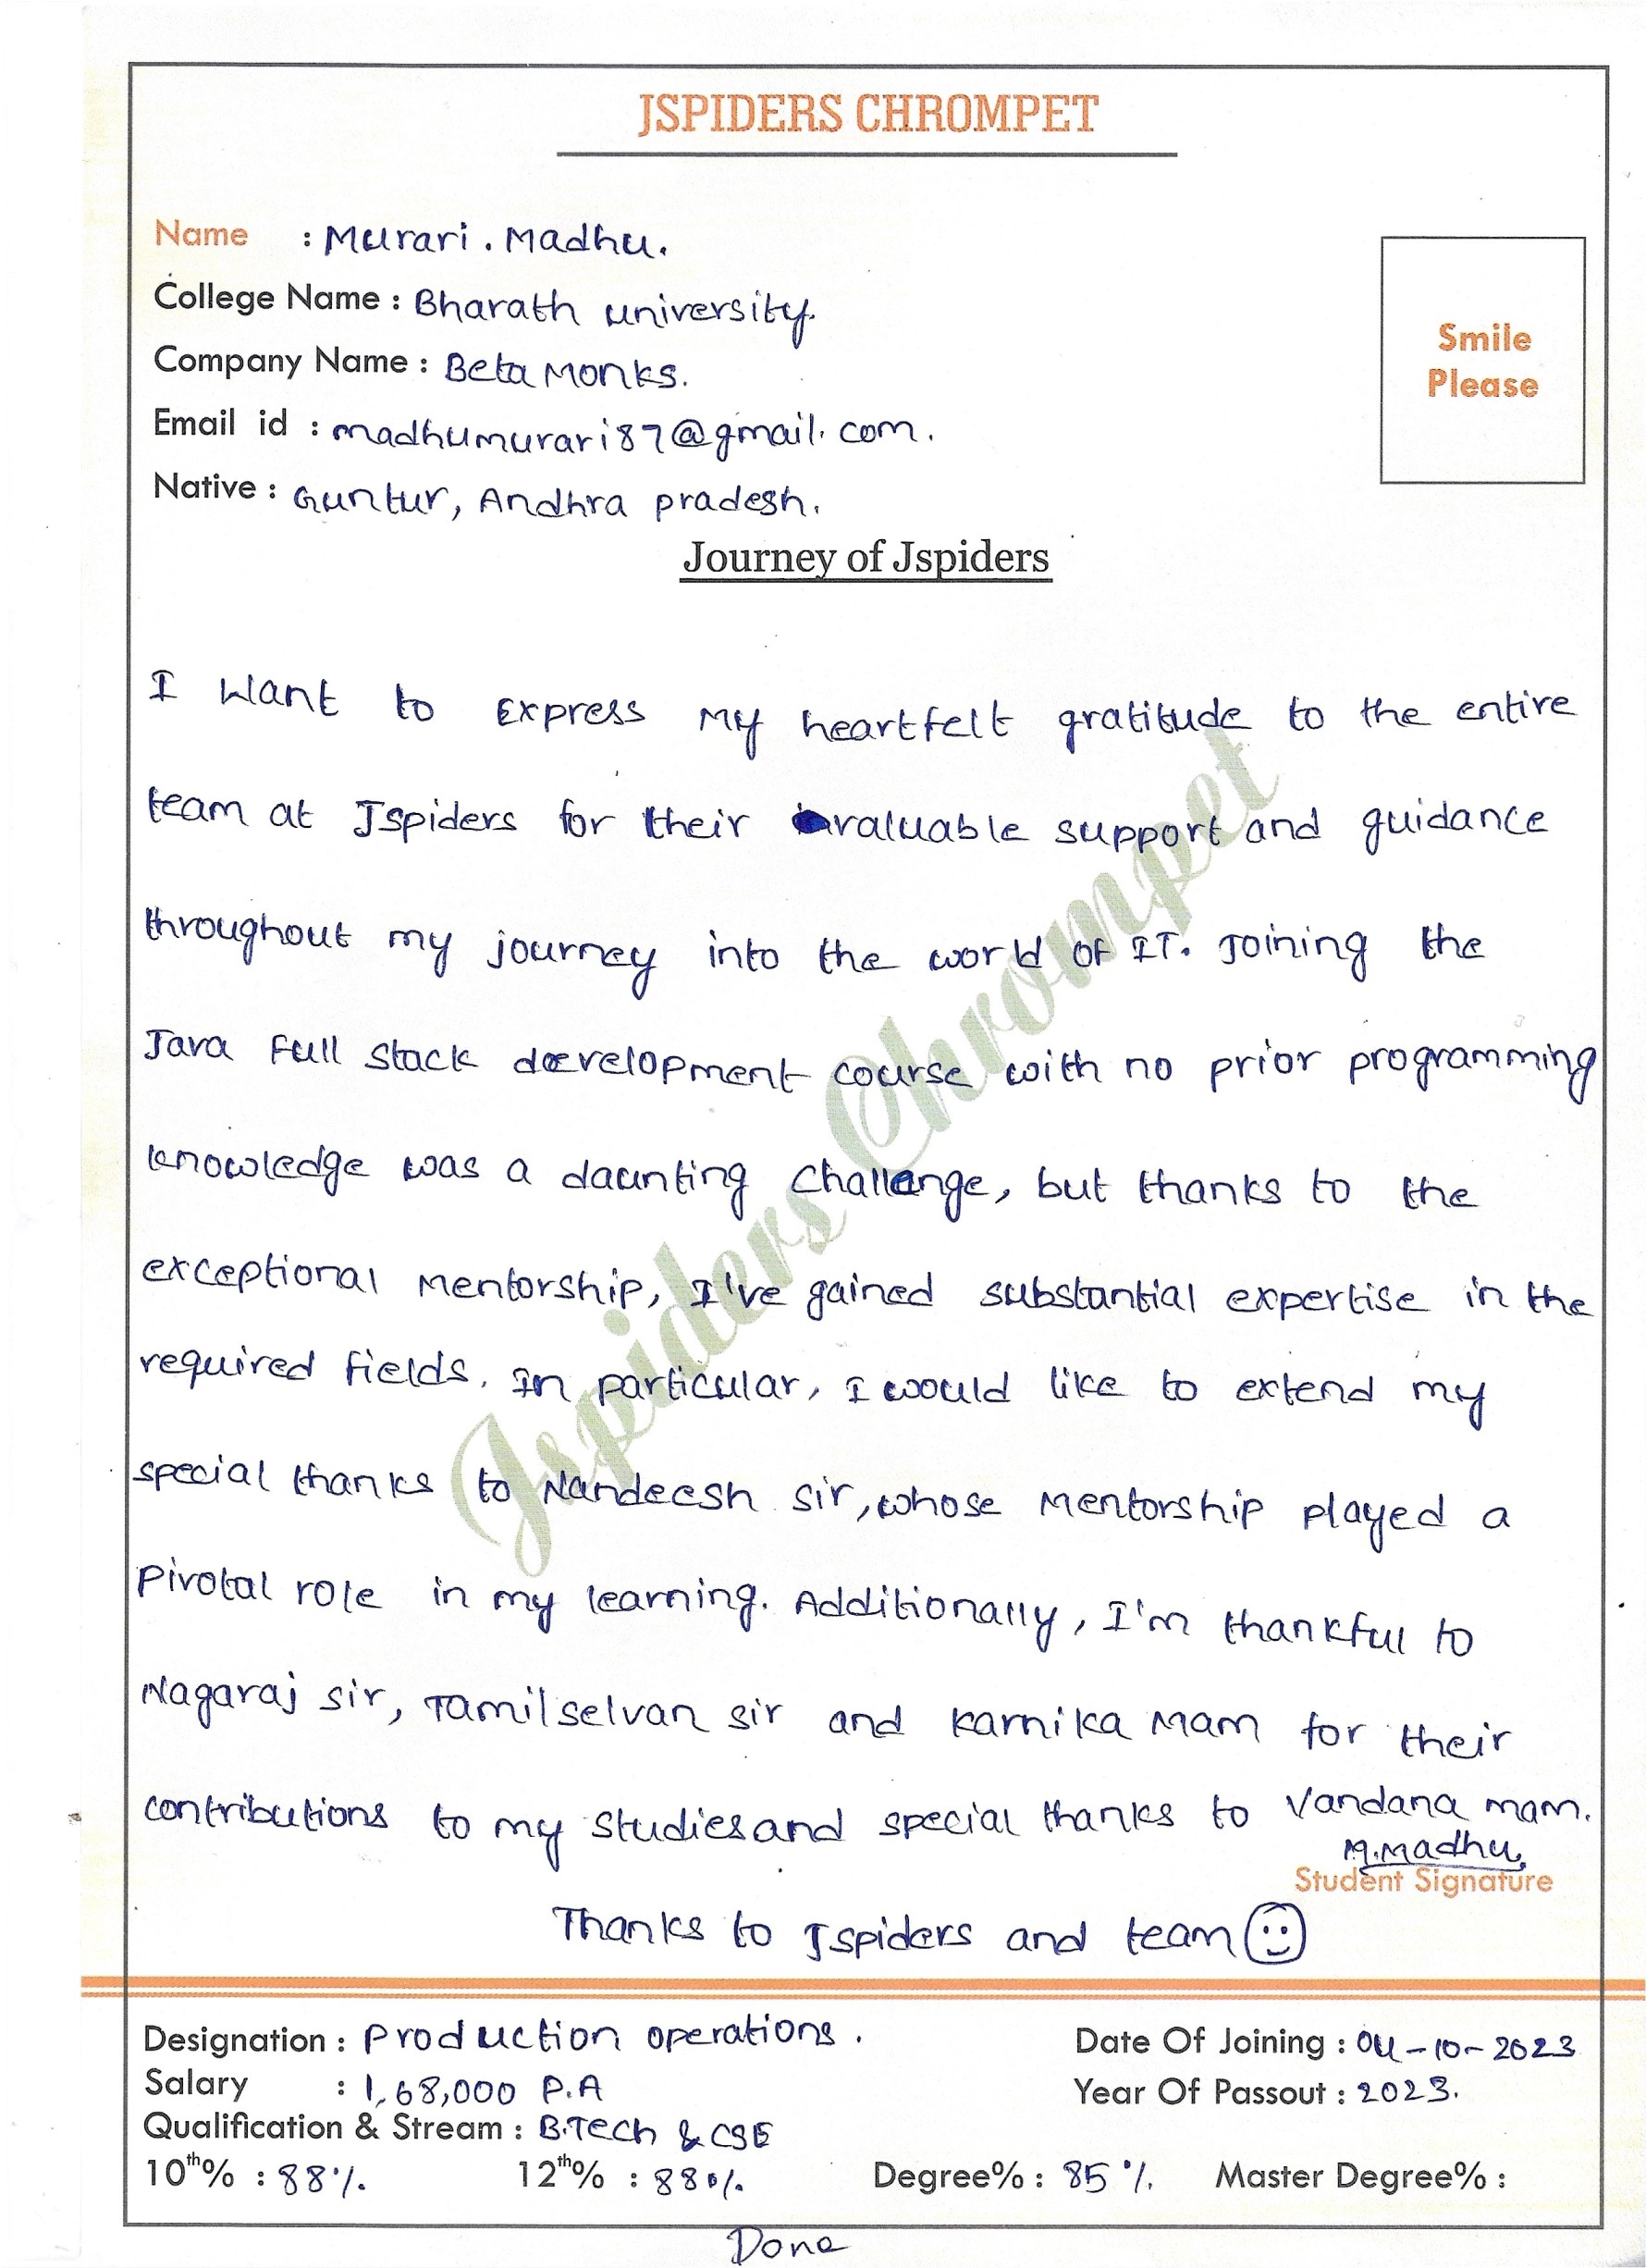 JSPIDERS CHROMPET
Name : Murari. Madhu.
College Name : Bharath university.
Company Name : Beta Monks.
Email id : madhumurari87@gmail.com.
Native : Guntur, Andhra pradesh.
Smile
Please
Journey of Jspiders
I want to express my heartfelt gratitude to the entire
team at Jspiders for their valuable support and guidance
throughout my journey into the world of IT. Joining the
Java Full stack development course with no prior programming
knowledge was a daunting challenge, but thanks to the
exceptional mentorship, I've gained substantial expertise in the
required fields. In particular, I would like to extend my
special thanks to Nandeesh sir, whose mentorship played a
pivotal role in my learning. Additionally, I'm thankful to
Nagaraj sir, Tamilselvan sir and Karnika Mam for their
contributions to my studies and special thanks to Vandana mam.
M.Madhu.
Student Signature
Thanks to Jspiders and team
Jspiders Chrompet
Designation : Production operations.
Date Of Joining : 04-10-2023
Salary : 1,68,000 P.A
Year Of Passout : 2023.
Qualification & Stream : B.Tech & CSE
10th% : 88% 12th% : 88% Degree% : 85% Master Degree% :
Done